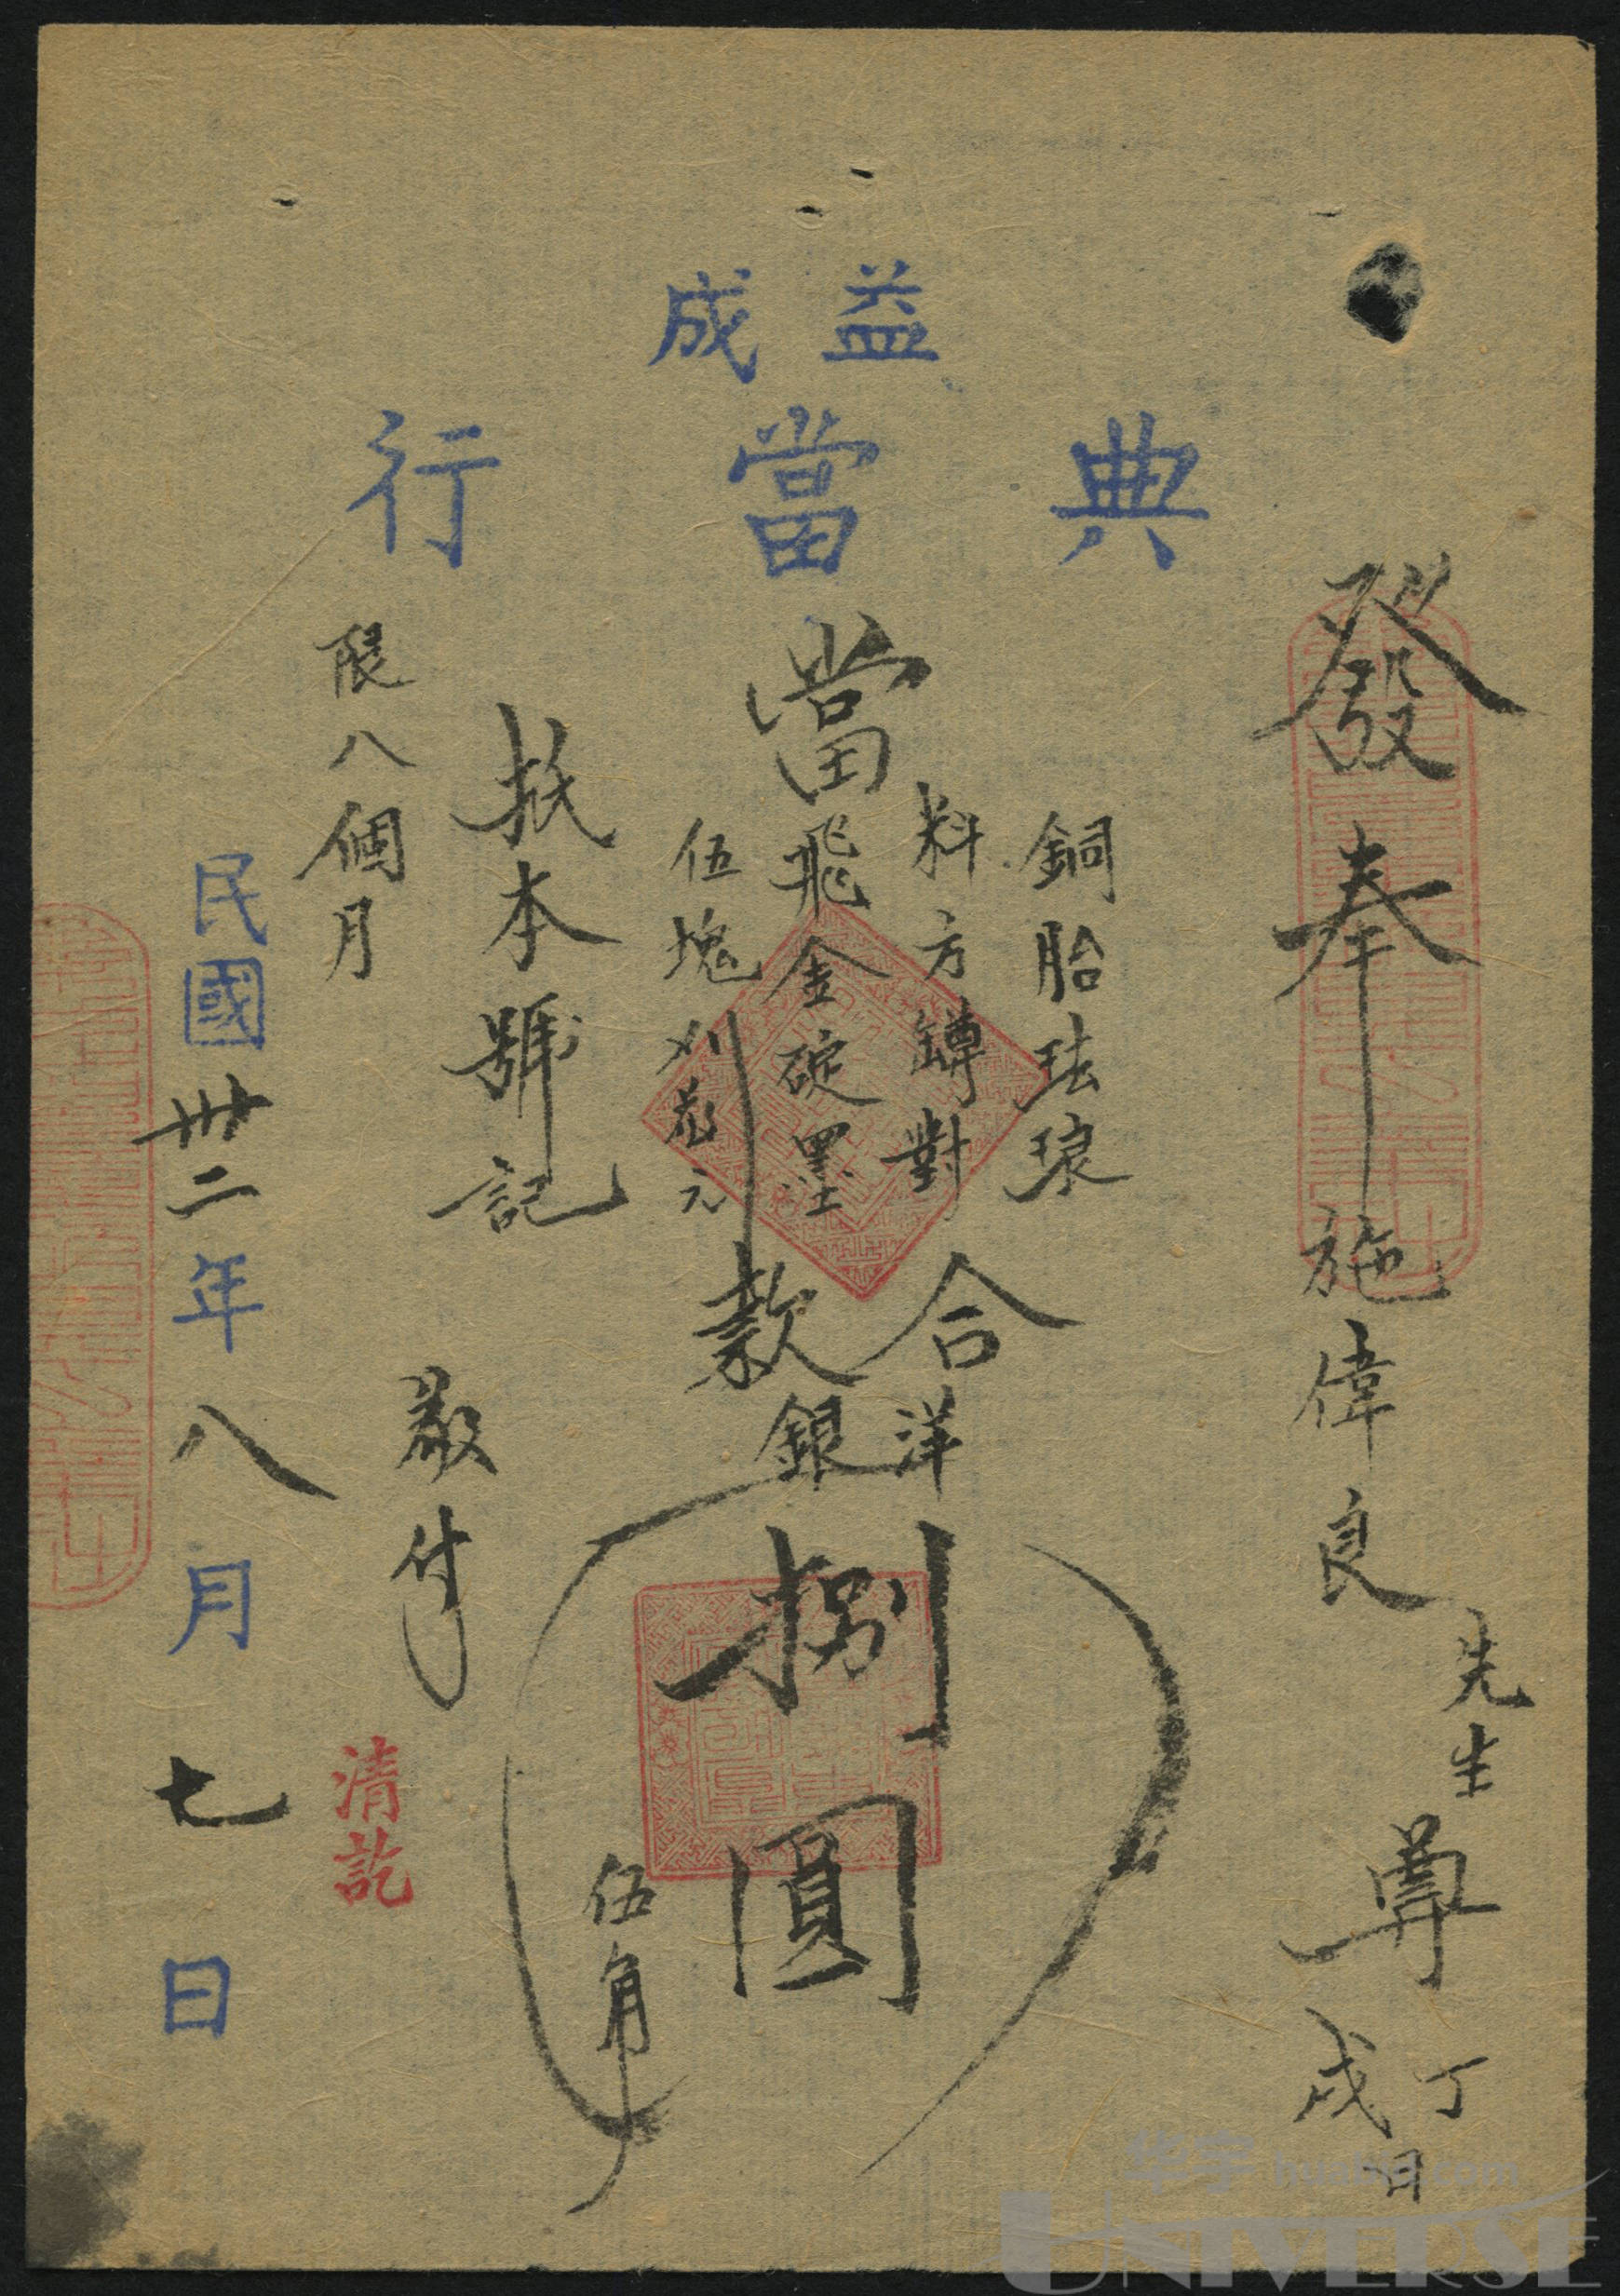 益成
典當行
發奉施偉良先生尊
丁
戌日
銅胎珐琅
料方罇對
當飛金碇墨
伍塊
合洋
款銀
捌圓
伍角
抵本號記
敬付
限八個月
清訖
民國卅二年八月七日
华宇 huabid.com
UNIVERSE